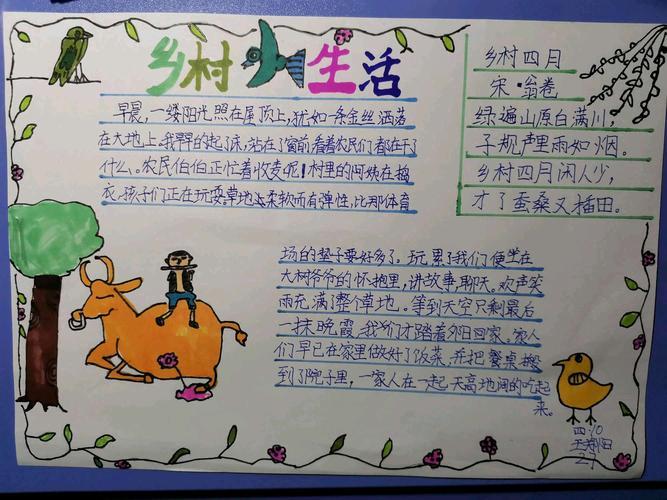 乡村小生活
早晨，一缕阳光照在屋顶上，犹如一条金丝洒落
在大地上。我早早的起了床，站在了窗前看着农民们都在干了
什么。农民伯伯正忙着收麦呢！村里的阿姨在摘
衣，孩子们正在玩耍。草地上柔软而有弹性，比那体育
场的垫子要好多了。玩累了我们便坐在
大树爷爷的怀抱里，讲故事，聊天。欢声笑
雨充满了整个草地。等到天空只剩最后
一抹晚霞，我们才踏着夕阳回家。家人
们早已在家里做好了饭菜，并把餐桌搬
到了院子里，一家人在一起天高地阔的吃起
来。
乡村四月
宋·翁卷
绿遍山原白满川，
子规声里雨如烟。
乡村四月闲人少，
才了蚕桑又插田。
四.10